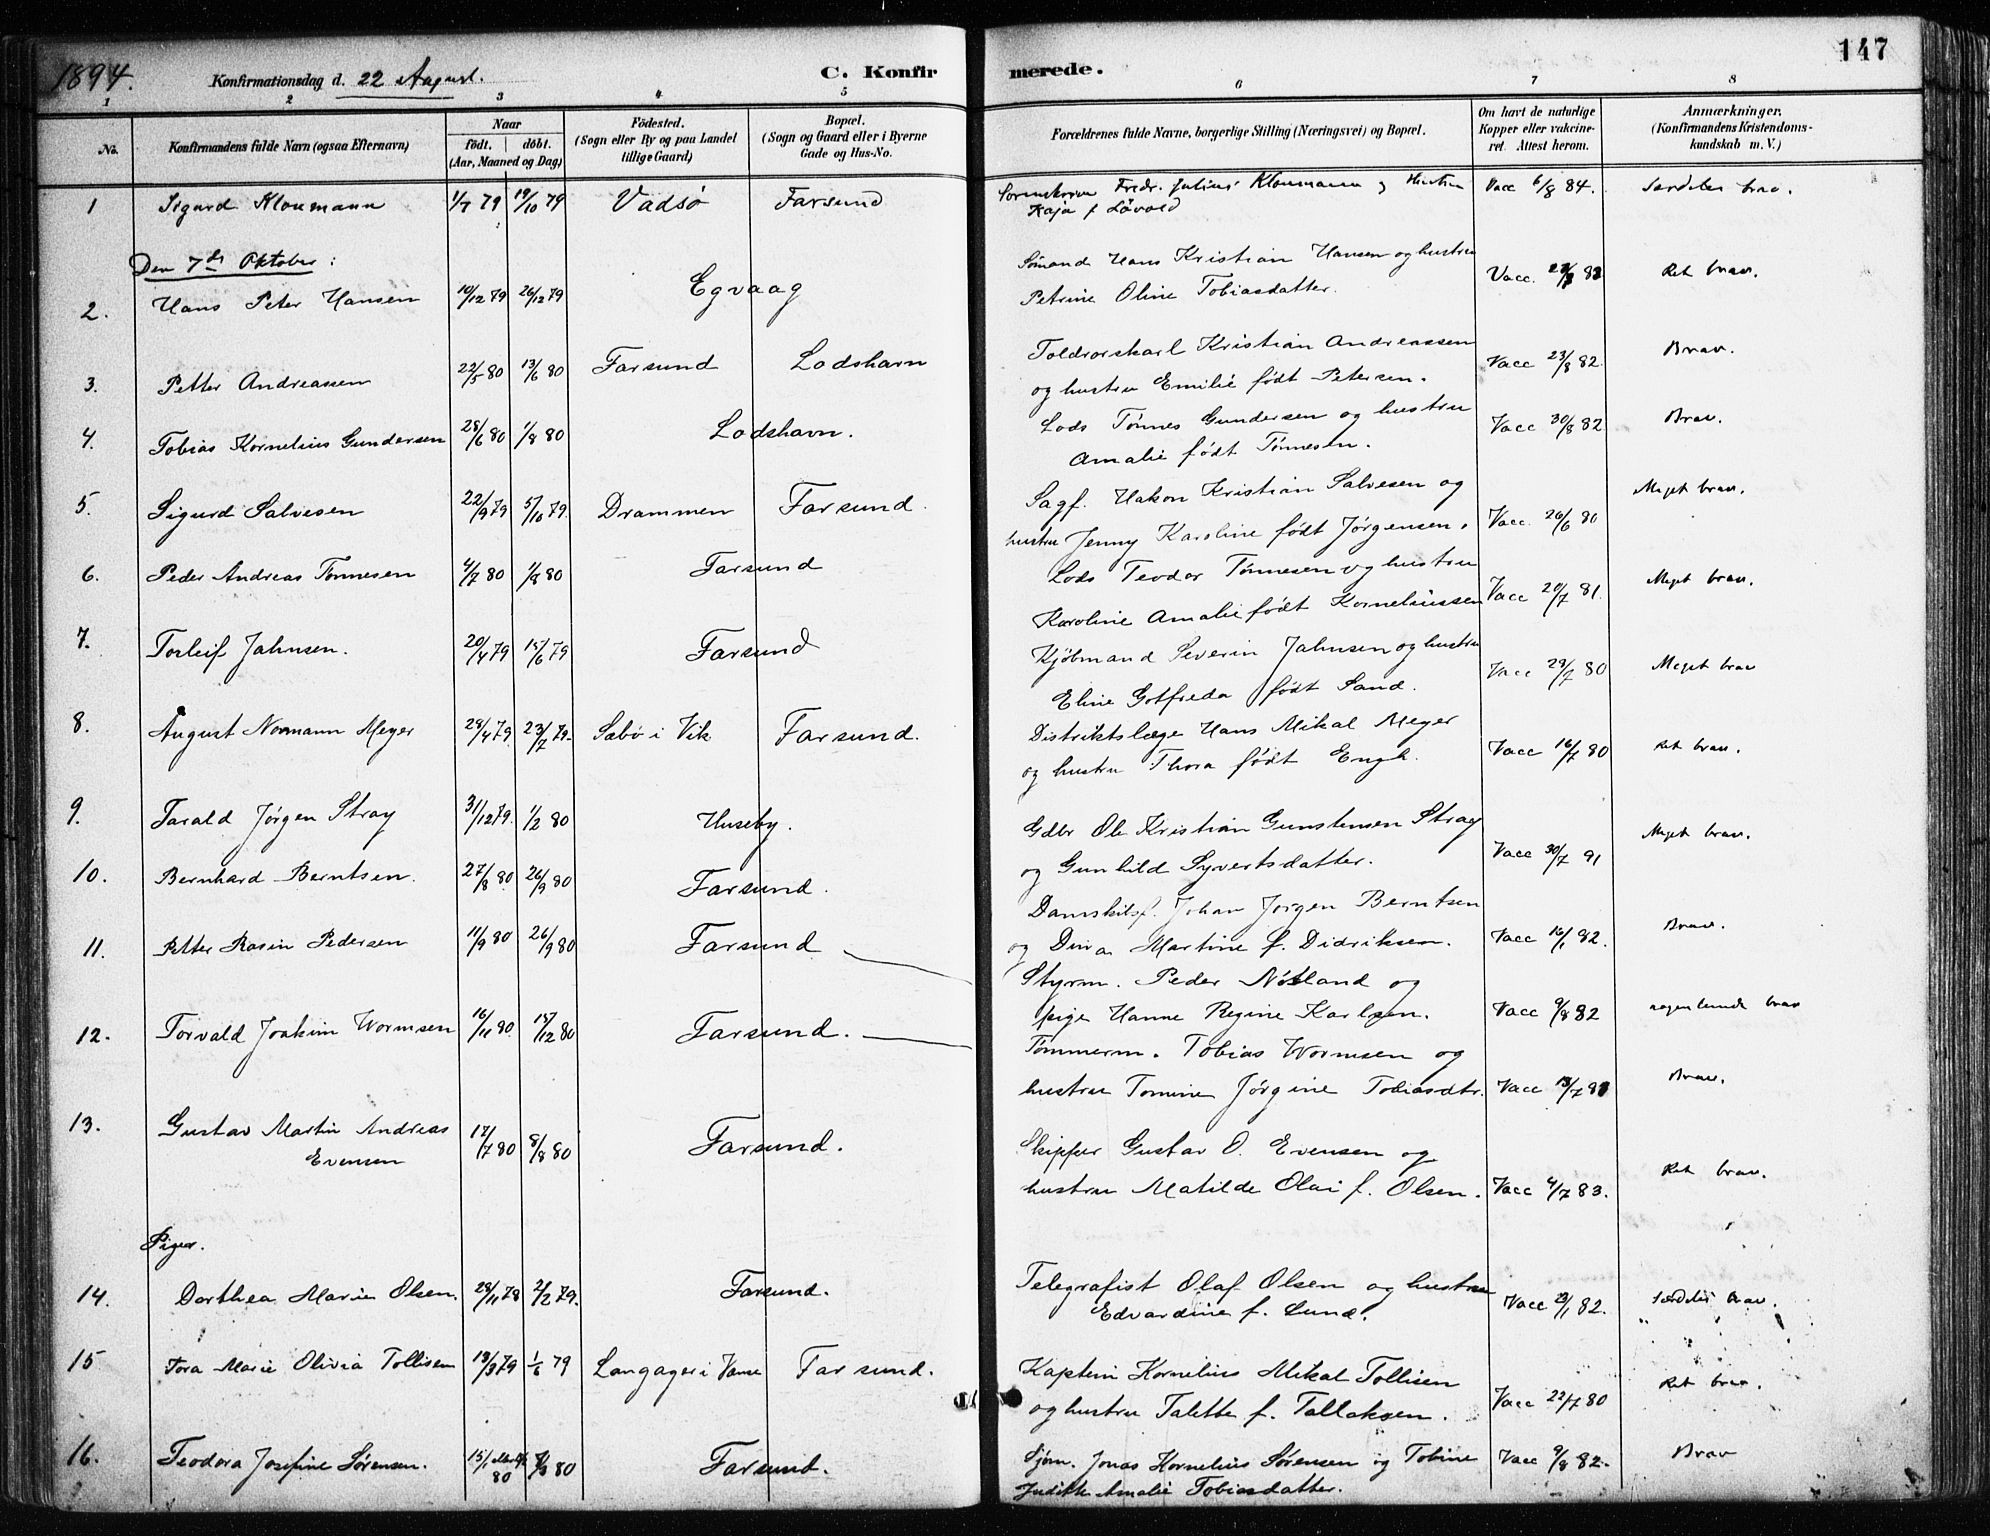 1894. Konfirmationsdag d. 22 August. C. Konfirmerede. 147
1 2 3 4 5 6 7 8
No. Konfirmandens fulde Navn (ogsaa Efternavn) Naar født. døbt. (Aar, Maaned og Dag) Fødested. (Sogn eller By og paa Landet tillige Gaard) Bopæl. (Sogn og Gaard eller i Byerne Gade og Hus-No. Forældrenes fulde Navne, borgerlige Stilling (Næringsvei) og Bopæl. Om havt de naturlige Kopper eller vakcineret. Attest herom. Anmærkninger. (Konfirmandens Kristendomskundskab m. V.)
1 Sigurd Kloumann 1/7 79 19/10 79 Vadsø Farsund Sorenskriver Fredr. Julius Kloumann og Hustru Vacc 6/8 84. Særdeles brav.
Kaja f Løvold
Den 7de Oktober:
2. Hans Peter Hansen 10/12 79 26/12 79 Egvaag Sømand Hans Kristian Hansen og hustru Vacc. Ret brav.
Petrine Oline Tobiasdatter.
3. Petter Andreassen 22/5 80 13/6 80 Farsund Lodshavn Toldrorskarl Kristian Andreassen Vacc 23/8 82. Brav.
og hustru Emilie født Petersen.
4. Tobias Kornelius Gundersen 28/6 80 1/8 80 Lodshavn. Lods Tønnes Gundersen og hustru Vacc 30/8 82 Brav.
Amalie født Tønnesen.
5. Sigurd Salvesen 22/9 79 5/10 79. Drammen Farsund. Sagf. Hakon Kristian Salvesen og Vacc. 26/6 80 Meget brav.
hustru Jenny Karoline født Jørgensen.
6. Peder Andreas Tønnesen 4/7 80 1/8 80 Farsund Lods Teodor Tønnesen og hustru Vacc 20/7 81. Meget brav.
Karoline Amalie født Korneliussen
7. Torleif Jahnsen. 20/4 79 15/6 79 Farsund Kjøbmand Severin Jahnsen og hustru Vacc 29/7 80 Meget brav
Eline Gotfreda født Sand.
8. August Normann Meyer 29/4 79. 23/7 79. Sæbø i Vik Farsund. Distriktslæge Hans Mikal Meyer Vacc 16/7 80 Ret brav.
og hustru Thora født Engh.
9. Tarald Jørgen Stray 31/12 79. 1/2 80 Huseby. Gdbr Ole Kristian Gunstensen Stray Vacc 30/7 91 Meget brav.
og Gunhild Syvertsdatter.
10. Bernhard Berntsen. 27/8 80 26/9 80 Farsund. Damskibsf. Johan Jørgen Berntsen Vacc 16/1 82. Brav.
og Dina Martine f. Didriksen.
11. Petter Rasin Pedersen 11/9 80 26/9 80 Farsund Styrm. Peder Nøtland og Vacc 9/8 82 nogenlunde brav
pige Hanne Regine Karlsen.
12. Torvald Joakim Wormsen 16/11 80 15/12 80 Farsund. Tømmerm. Tobias Wormsen og Brav.
hustru Tomine Jørgine Tobiasdtr. Vacc 13/7 81
13. Gustav Martin Andreas 17/7 80 8/8 80 Farsund. Skipper Gustav O. Evensen og Ret brav.
Evensen hustru Matilde Olai f. Olsen. Vacc 4/7 83.
Piger.
14. Dorthea Marie Olsen. 28/11 78 2/2 79. Farsund. Telegrafist Olaf Olsen og hustru Vacc 23/1 82. Særdeles brav.
Edvardine f. Lund.
15 Tora Marie Olivia Tollisen 13/3 79 1/6 79 Langager i Vanse Farsund. Kaptein Kornelius Mikal Tollisen Vacc 22/7 80 Ret brav.
og hustru Talette f. Tallaksen.
16. Teodora Josefine Sørensen. 80 Farsund. Sjøm. Jonas Kornelius Sørensen og Tobine Vacc 9/8 82. Brav
Judith Amalie Tobiasdatter.